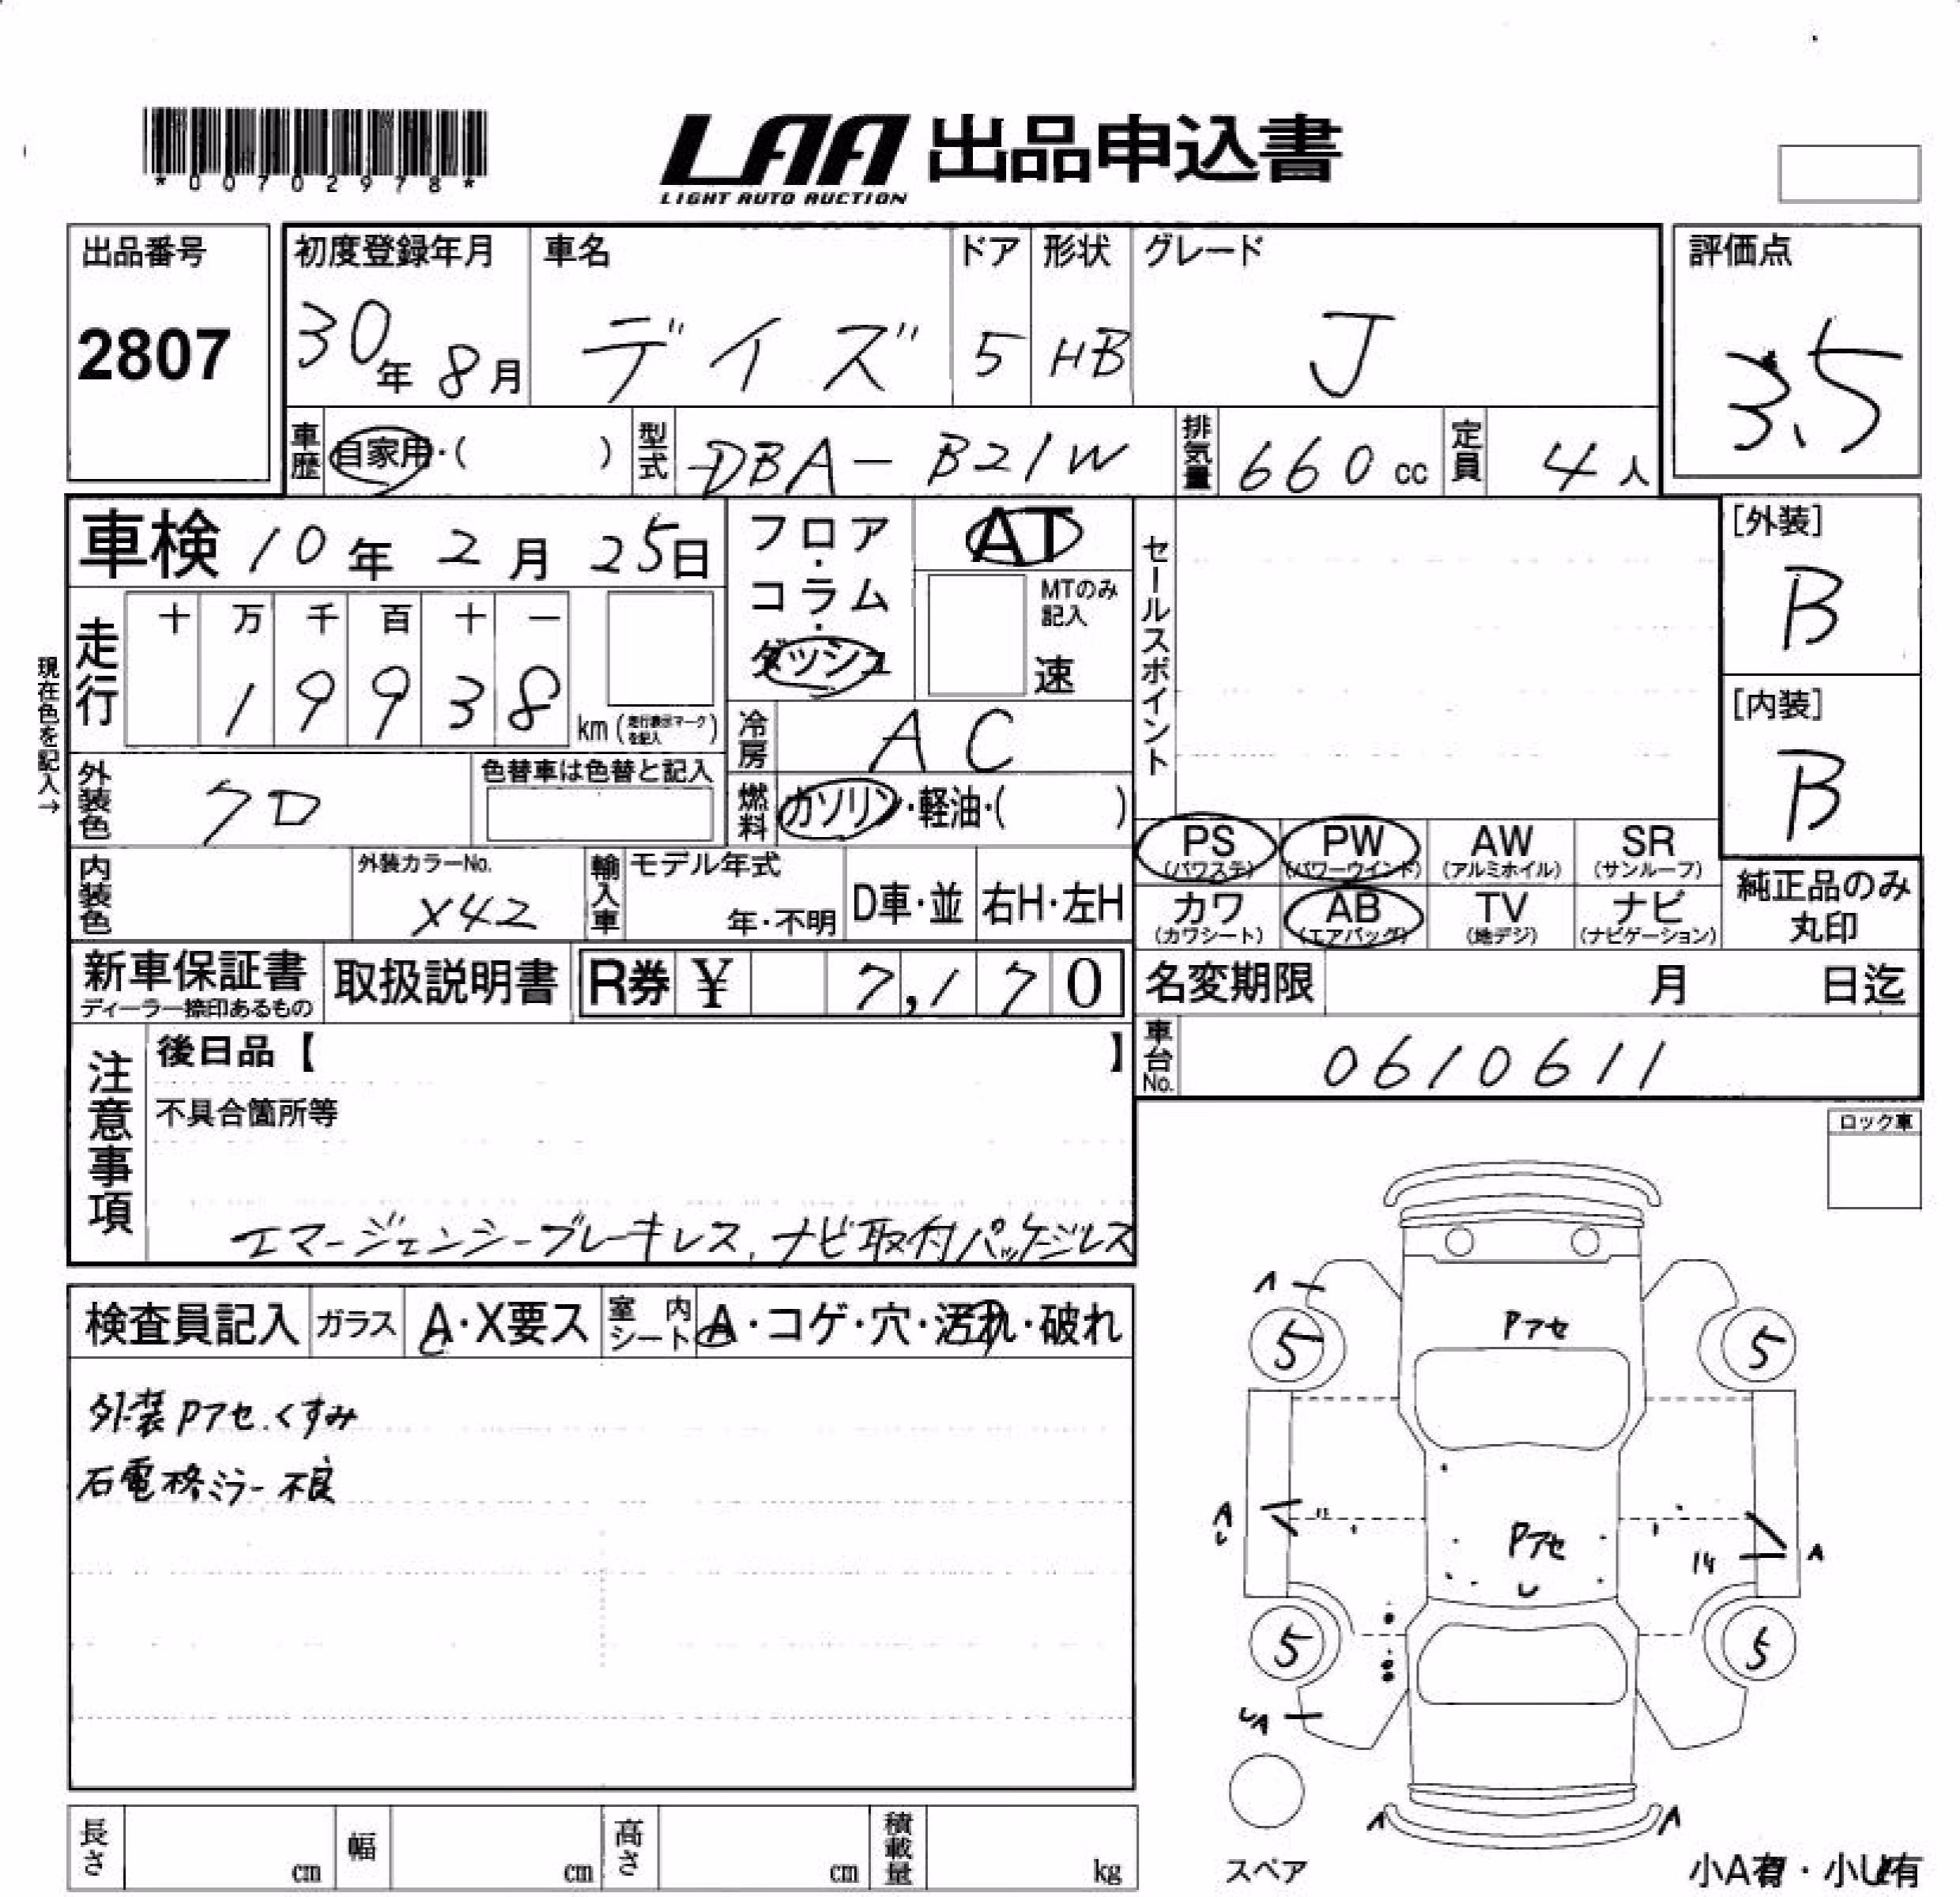 *00702978*
LAA 出品申込書
LIGHT AUTO AUCTION
出品番号
2807
初度登録年月
30年 8月
車名
デイズ
ドア
5
形状
HB
グレード
J
評価点
3.5
車歴 自家用・( )
型式 DBA-B21W
排気量 660 cc
定員 4人
車検 10年 2月 25日
フロア・コラム・ダッシュ
AT
MTのみ記入
速
セールスポイント
[外装]
B
[内装]
B
現在色を記入→
走行
十 万 千 百 十 一
1 9 9 3 8
km (走行表示マークを記入)
冷房 AC
外装色 クロ
色替車は色替と記入
燃料 ガソリン・軽油・( )
PS (パワステ)
PW (パワーウインド)
AW (アルミホイル)
SR (サンルーフ)
カワ (カワシート)
AB (エアバッグ)
TV (地デジ)
ナビ (ナビゲーション)
純正品のみ丸印
内装色
外装カラーNo.
X42
輸入車
モデル年式
年・不明
D車・並
右H・左H
新車保証書
ディーラー捺印あるもの
取扱説明書
R券 ¥ 7,170
名変期限 月 日迄
車台No. 0610611
注意事項
後日品【 】
不具合箇所等
エマージェンシーブレーキレス, ナビ取付パッケージレス
ロック車
検査員記入
ガラス A・X要ス
室内シート A・コゲ・穴・汚れ・破れ
外装Pアセ.くすみ
右電格ミラー不良
A
Pアセ
5 5
A
Pアセ
U
14
A
5 5
UA
A A
スペア
小A有・小U有
長さ cm
幅 cm
高さ cm
積載量 kg